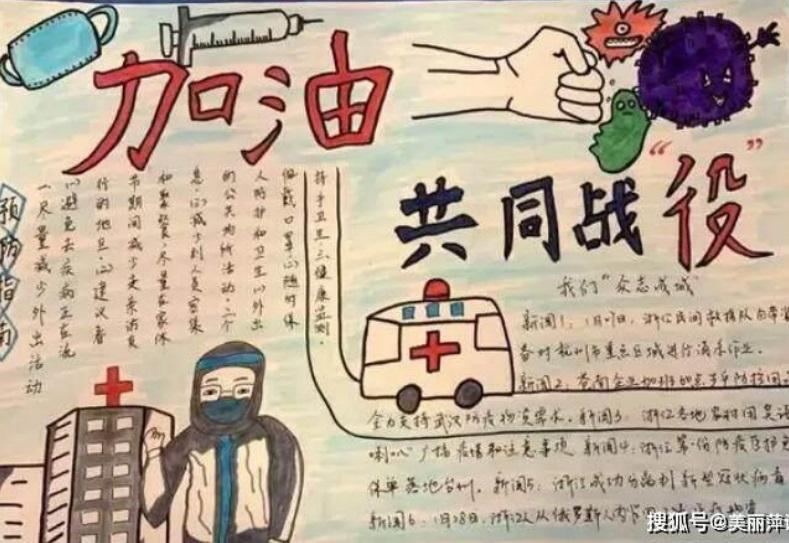 加油
共同战“役”
预防指南
一尽量减少外出活动
(1)避免去疾病正在流
行的地区.(2)建议春
节期间减少走亲访友
和聚餐,尽量在家休
息.(3)减少到人员密集
的公共场所活动.二个
人防护和卫生(1)外出
佩戴口罩(2)随时保
持手卫生,三健康监测.
我们“众志成城”
新闻1:1月27日,浙江民间救援队自带
备对杭州市重点区域进行消杀作业.
新闻2:苍南企业加班 防控
全力支持武汉防疫物资需求.新闻3:浙江各地农村
喇叭广播疫情和注意事项 新闻4:浙江第一份防疫
保单落地台州.新闻5:浙江成功分离到新型冠状病毒
新闻6:1月28日,浙江人从俄罗斯人肉
搜狐号@美丽萍